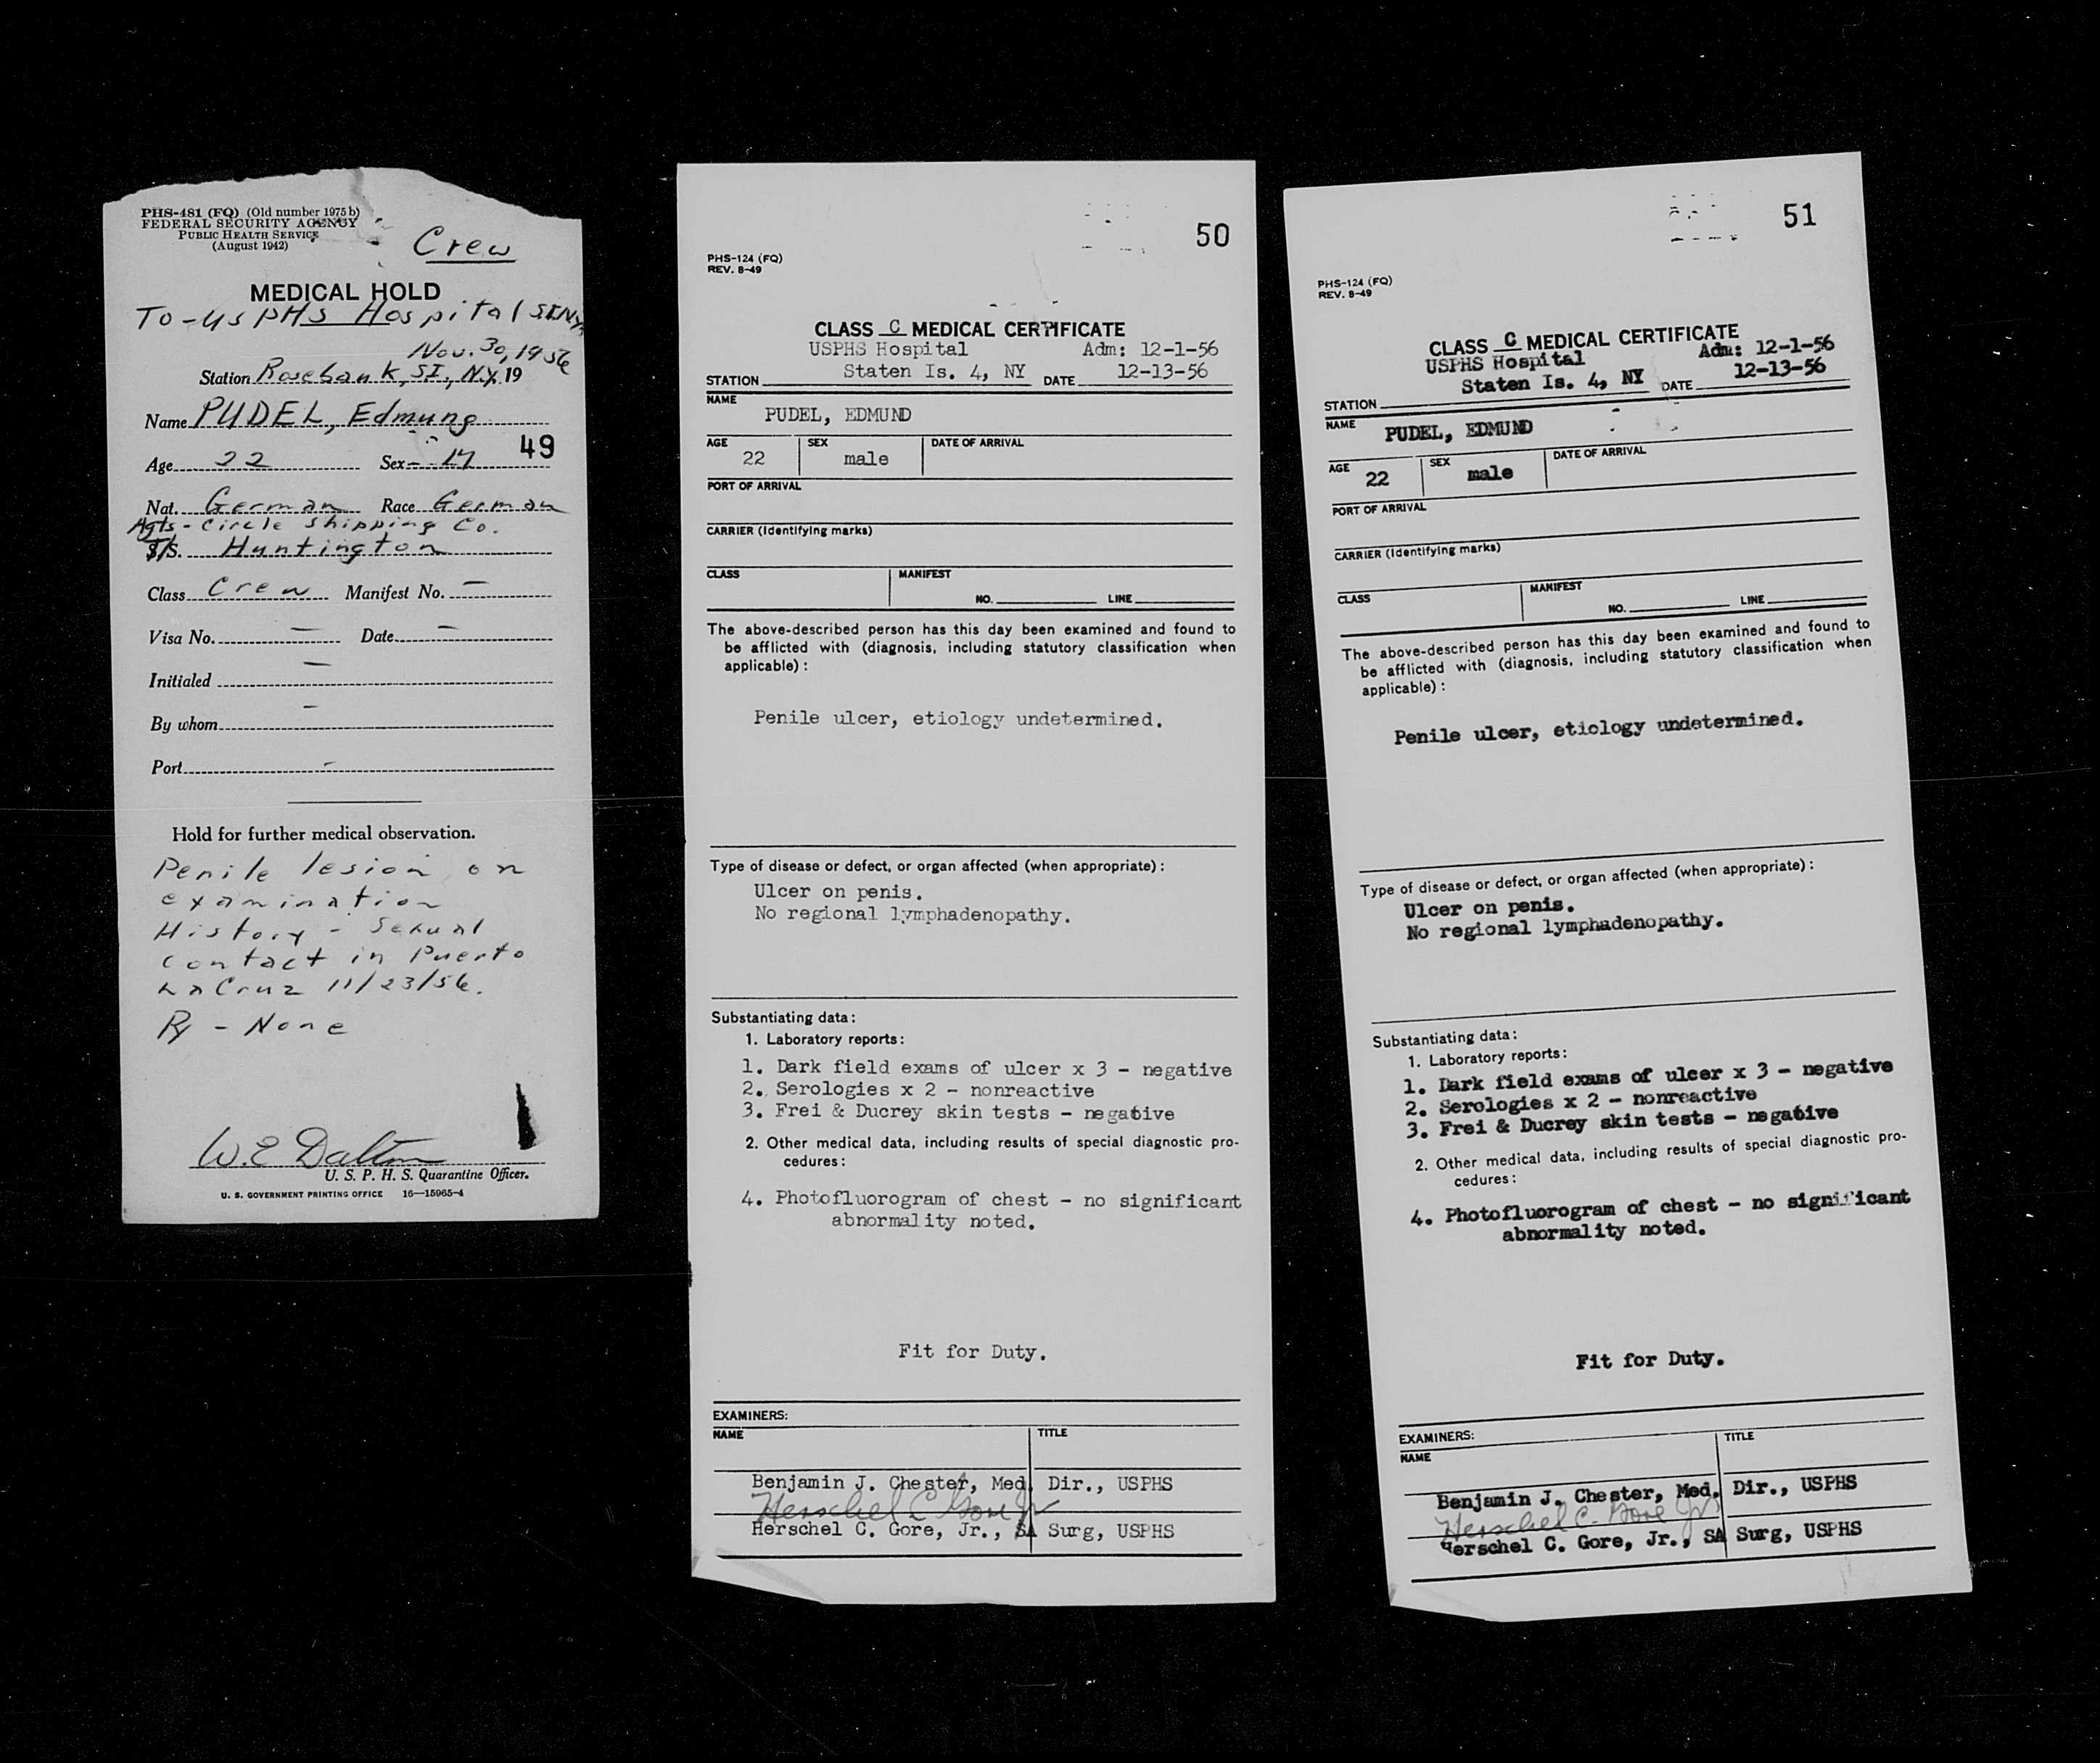 PHS-481 (FQ) (Old number 1975 b)
FEDERAL SECURITY AGENCY
PUBLIC HEALTH SERVICE
(August 1942)
Crew
MEDICAL HOLD
To - US PHS Hospital SI NY
Nov. 30, 1956
Station Rosebank, SI, N.Y. 19
Name PUDEL, Edmund
49
Age 22 Sex M
Nat. German Race German
Agts - Circle Shipping Co.
S/S. Huntington
Class Crew Manifest No. —
Visa No. — Date —
Initialed —
By whom —
Port -
Hold for further medical observation.
Penile lesion on
examination
History - Sexual
contact in Puerto
La Cruz 11/23/56.
Rx - None
W. E. Dalton
U. S. P. H. S. Quarantine Officer.
U. S. GOVERNMENT PRINTING OFFICE 16—15965-4
50
PHS-124 (FQ)
REV. 8-49
CLASS C MEDICAL CERTIFICATE
USPHS Hospital Adm: 12-1-56
STATION Staten Is. 4, NY DATE 12-13-56
NAME
PUDEL, EDMUND
AGE SEX DATE OF ARRIVAL
22 male
PORT OF ARRIVAL
CARRIER (Identifying marks)
CLASS MANIFEST
NO. LINE
The above-described person has this day been examined and found to
be afflicted with (diagnosis, including statutory classification when
applicable):
Penile ulcer, etiology undetermined.
Type of disease or defect, or organ affected (when appropriate):
Ulcer on penis.
No regional lymphadenopathy.
Substantiating data:
1. Laboratory reports:
1. Dark field exams of ulcer x 3 - negative
2. Serologies x 2 - nonreactive
3. Frei & Ducrey skin tests - negative
2. Other medical data, including results of special diagnostic pro-
cedures:
4. Photofluorogram of chest - no significant
abnormality noted.
Fit for Duty.
EXAMINERS:
NAME TITLE
Benjamin J. Chester, Med. Dir., USPHS
Herschel C. Gore Jr
Herschel C. Gore, Jr., SA Surg, USPHS
51
PHS-124 (FQ)
REV. 8-49
CLASS C MEDICAL CERTIFICATE
USPHS Hospital Adm: 12-1-56
STATION Staten Is. 4, NY DATE 12-13-56
NAME
PUDEL, EDMUND
AGE SEX DATE OF ARRIVAL
22 male
PORT OF ARRIVAL
CARRIER (Identifying marks)
CLASS MANIFEST
NO. LINE
The above-described person has this day been examined and found to
be afflicted with (diagnosis, including statutory classification when
applicable):
Penile ulcer, etiology undetermined.
Type of disease or defect, or organ affected (when appropriate):
Ulcer on penis.
No regional lymphadenopathy.
Substantiating data:
1. Laboratory reports:
1. Dark field exams of ulcer x 3 - negative
2. Serologies x 2 - nonreactive
3. Frei & Ducrey skin tests - negative
2. Other medical data, including results of special diagnostic pro-
cedures:
4. Photofluorogram of chest - no significant
abnormality noted.
Fit for Duty.
EXAMINERS:
NAME TITLE
Benjamin J. Chester, Med. Dir., USPHS
Herschel C. Gore Jr
Herschel C. Gore, Jr., SA Surg, USPHS